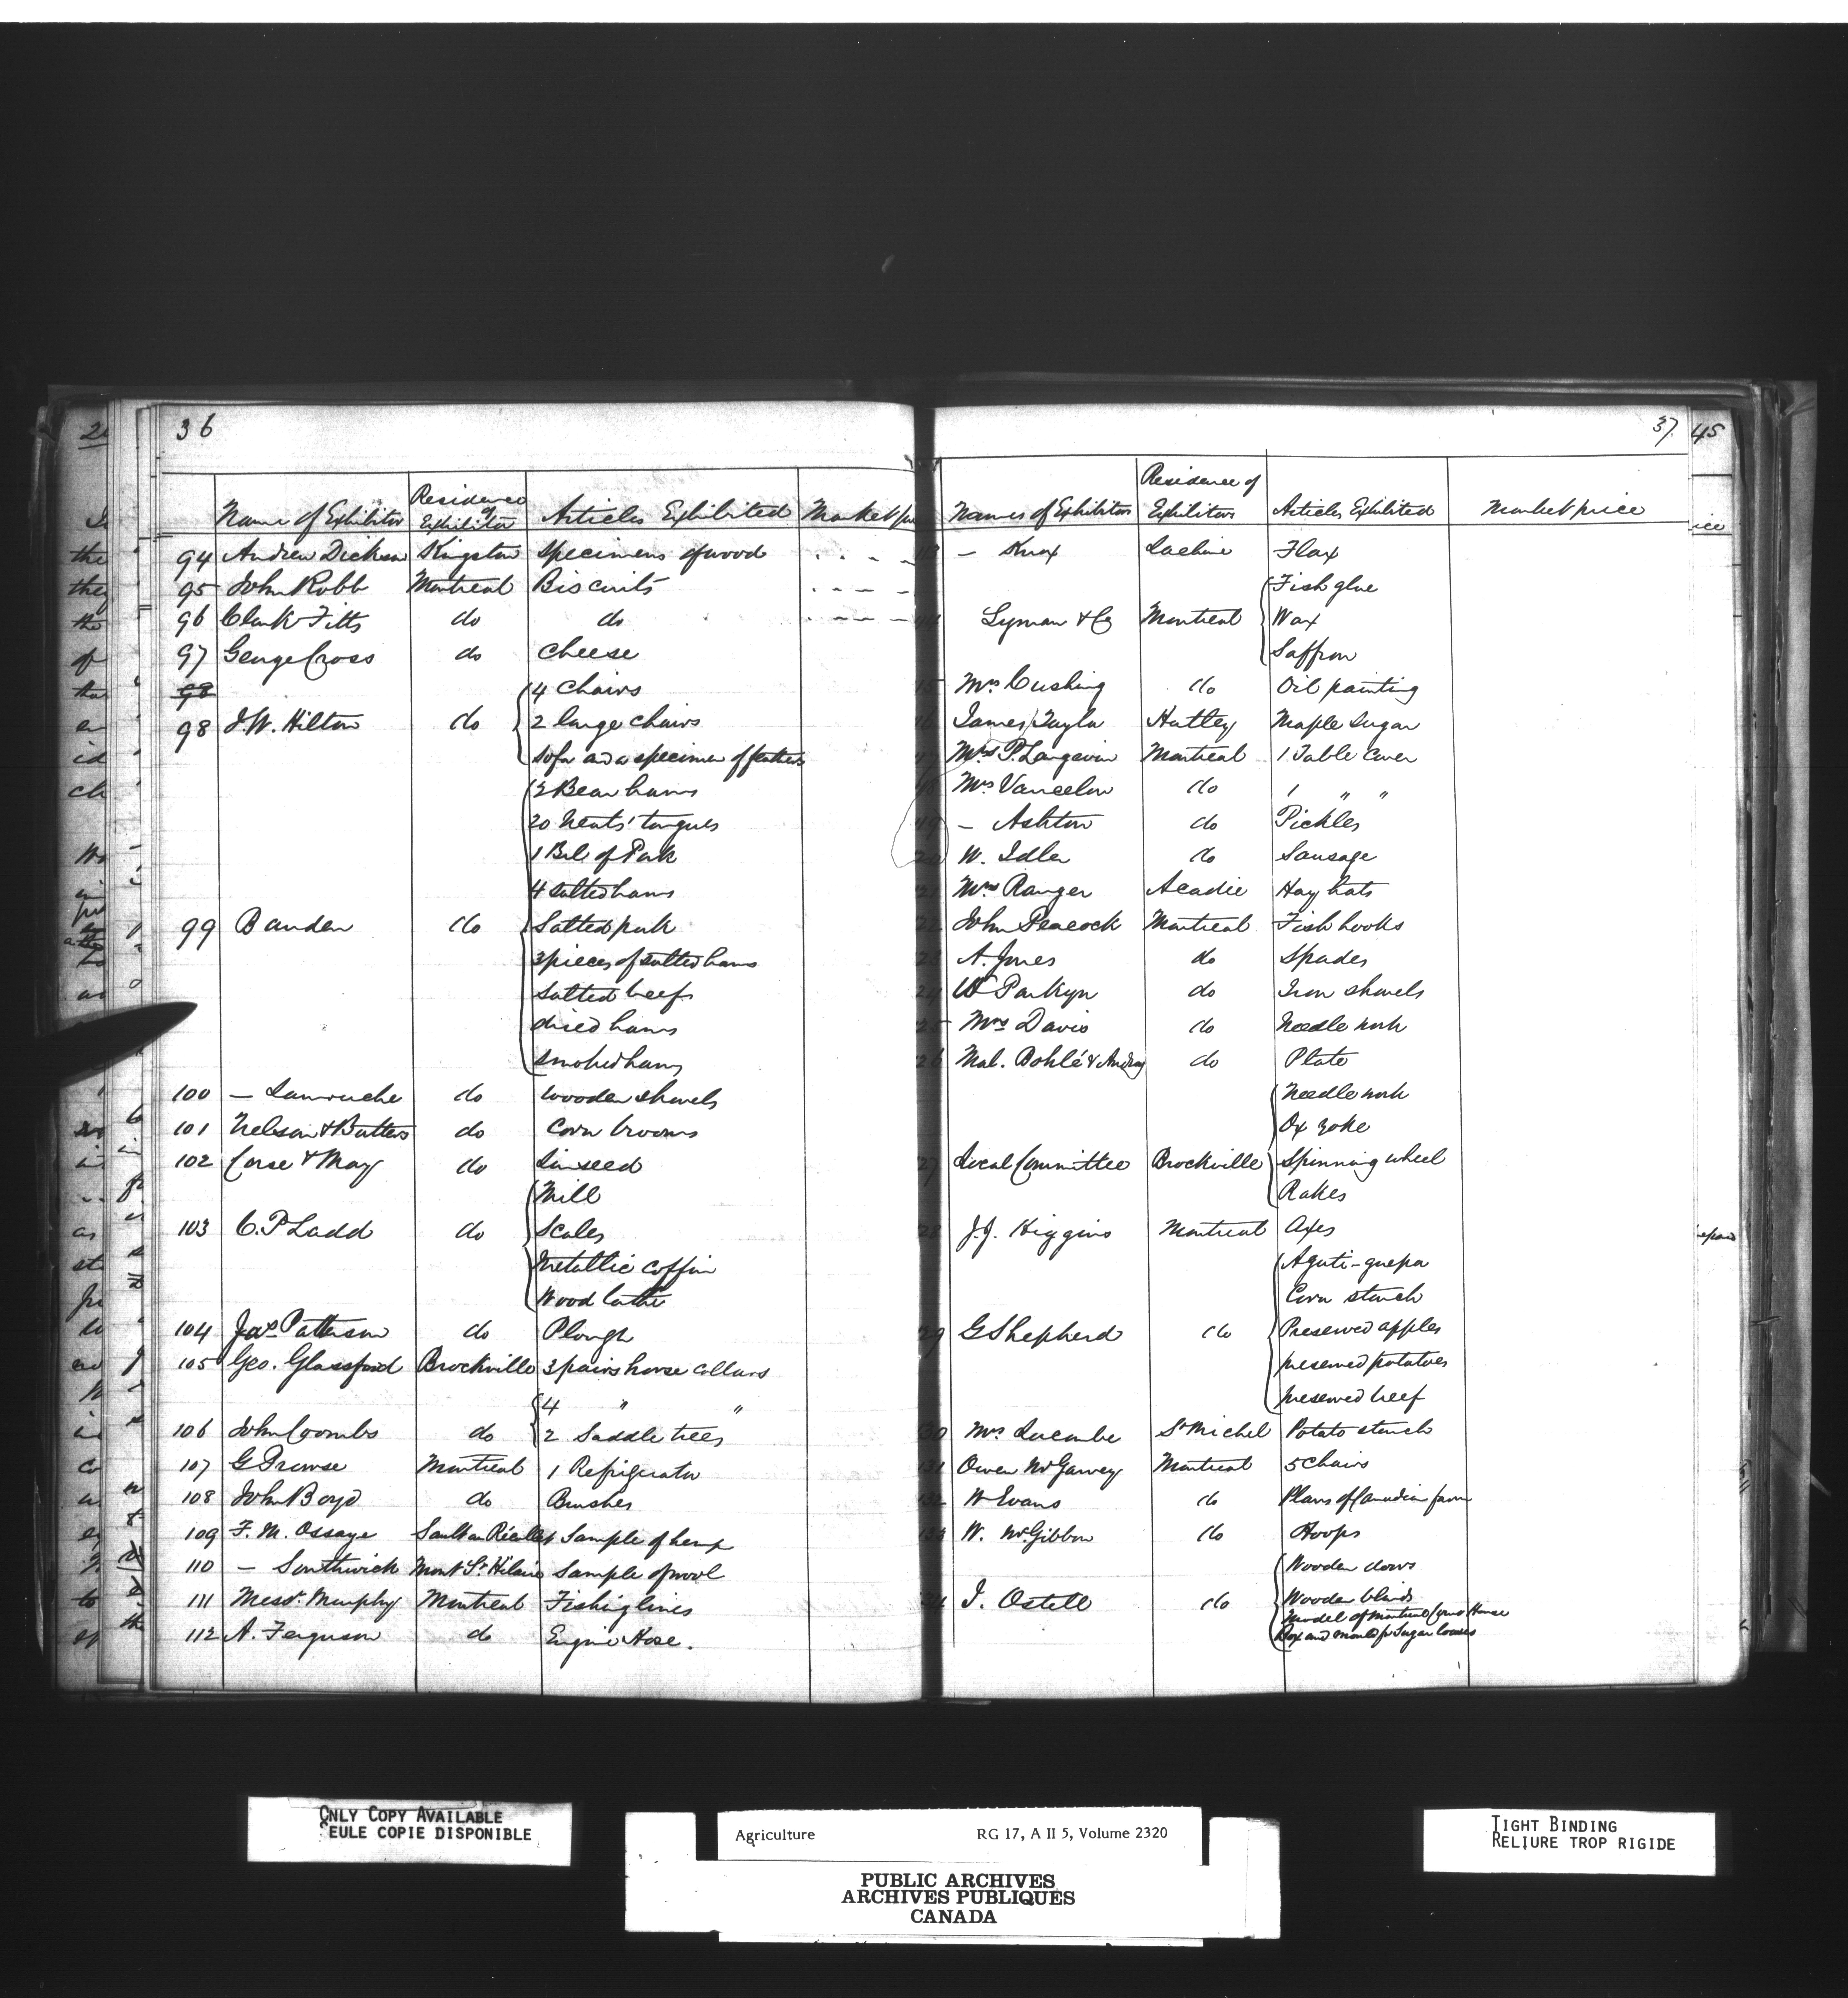 36
Name of Exhibitor Residence of Exhibitor Articles Exhibited Market
94 Andrew Dickson Kingston Specimens of wood
95 John Robb Montreal Biscuits
96 Clark Fitts do do
97 George Cross do Cheese
98
4 Chairs
98 J.W. Hilton do 2 large chairs
Sofa and a specimen of feathers
2 Bear hams
20 Neats' tongues
1 Brl. of Pork
4 salted hams
99 Bauden do Salted pork
3 pieces of salted hams
Salted beef
dried hams
Smoked hams
100 — Lamouche do Wooden shovels
101 Nelson & Butters do Corn brooms
102 Corse & May do Linseed
Mill
103 C. P. Ladd do Scales
Metallic coffin
Wood lathe
104 Jas. Patterson do Plough
105 Geo. Glassford Brockville 3 pairs horse collars
4 " "
106 John Coombs do 2 Saddle trees
107 G Prowse Montreal 1 Refrigerator
108 John Boyd do Brushes
109 F. M. Ossaye Sault au Ricollet Sample of hemp
110 — Southwick Mont St. Hilaire Sample of wool
111 Messr. Murphy Montreal Fishing lines
112 A. Ferguson do Engine Hose.
37
Names of Exhibitors Residence of Exhibitors Articles Exhibited Market price
— Knox Lachine Flax
Fish glue
Lyman & Co Montreal Wax
Saffron
Mrs Cushing do Oil painting
James Taylor Hatley Maple Sugar
Mrs P. Langevin Montreal 1 Table Cover
Mrs Vancelow do 1 " "
— Ashton do Pickles
W. Idler do Sausage
Mrs Ranger Acadie Hay hats
John Peacock Montreal Fish hooks
A. Jones do Spades
W Parkyn do Iron shovels
Mrs Davis do Needle work
Mal. Bohlé & do Plate
Needle work
Ox yoke
Local Committee Brockville Spinning wheel
Rakes
J.J. Higgins Montreal Axes
Aguti-guepa
Corn starch
G Shepherd do Preserved apples
preserved potatoes
preserved beef
Mrs Lacombe St Michel Potato starch
131 Owen McGarvey Montreal 5 Chairs
132 W Evans do Plans of Canadian farm
W. McGibbon do Hoops
Wooden doors
J. Ostell do Wooden blinds
Model of Montreal House
Box and mould for Sugar loaves
45
ONLY COPY AVAILABLE
SEULE COPIE DISPONIBLE
Agriculture RG 17, A II 5, Volume 2320
PUBLIC ARCHIVES
ARCHIVES PUBLIQUES
CANADA
TIGHT BINDING
RELIURE TROP RIGIDE